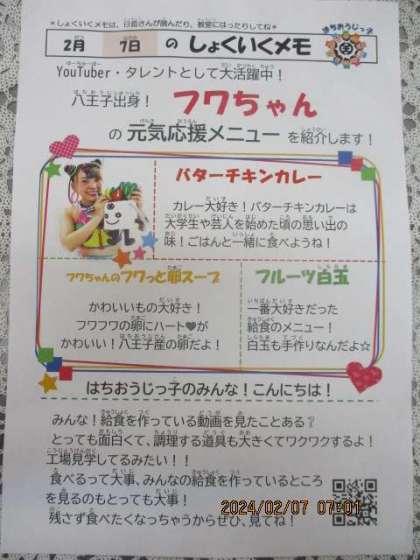 ＊しょくいくメモは、日直さんが読んだり、教室にはったりしてね＊
はちおうじっ子
2月 7日 の しょくいくメモ
YouTuber・タレントとして大活躍中！
八王子出身！ フワちゃん
の 元気応援メニュー を紹介します！
バターチキンカレー
カレー大好き！バターチキンカレーは
大学生や芸人を始めた頃の思い出の
味！ごはんと一緒に食べようね！
フワちゃんのフワっと卵スープ
かわいいもの大好き！
フワフワの卵にハート♥が
かわいい！八王子産の卵だよ！
フルーツ白玉
一番大好きだった
給食のメニュー！
白玉も手作りなんだよ☆
はちおうじっ子のみんな！こんにちは！
みんな！給食を作っている動画を見たことある？
とっても面白くて、調理する道具も大きくてワクワクするよ！
工場見学してるみたい！！
食べるって大事、みんなの給食を作っているところ
を見るのもとっても大事！
残さず食べたくなっちゃうからぜひ、見てね！
2024/02/07 07:01